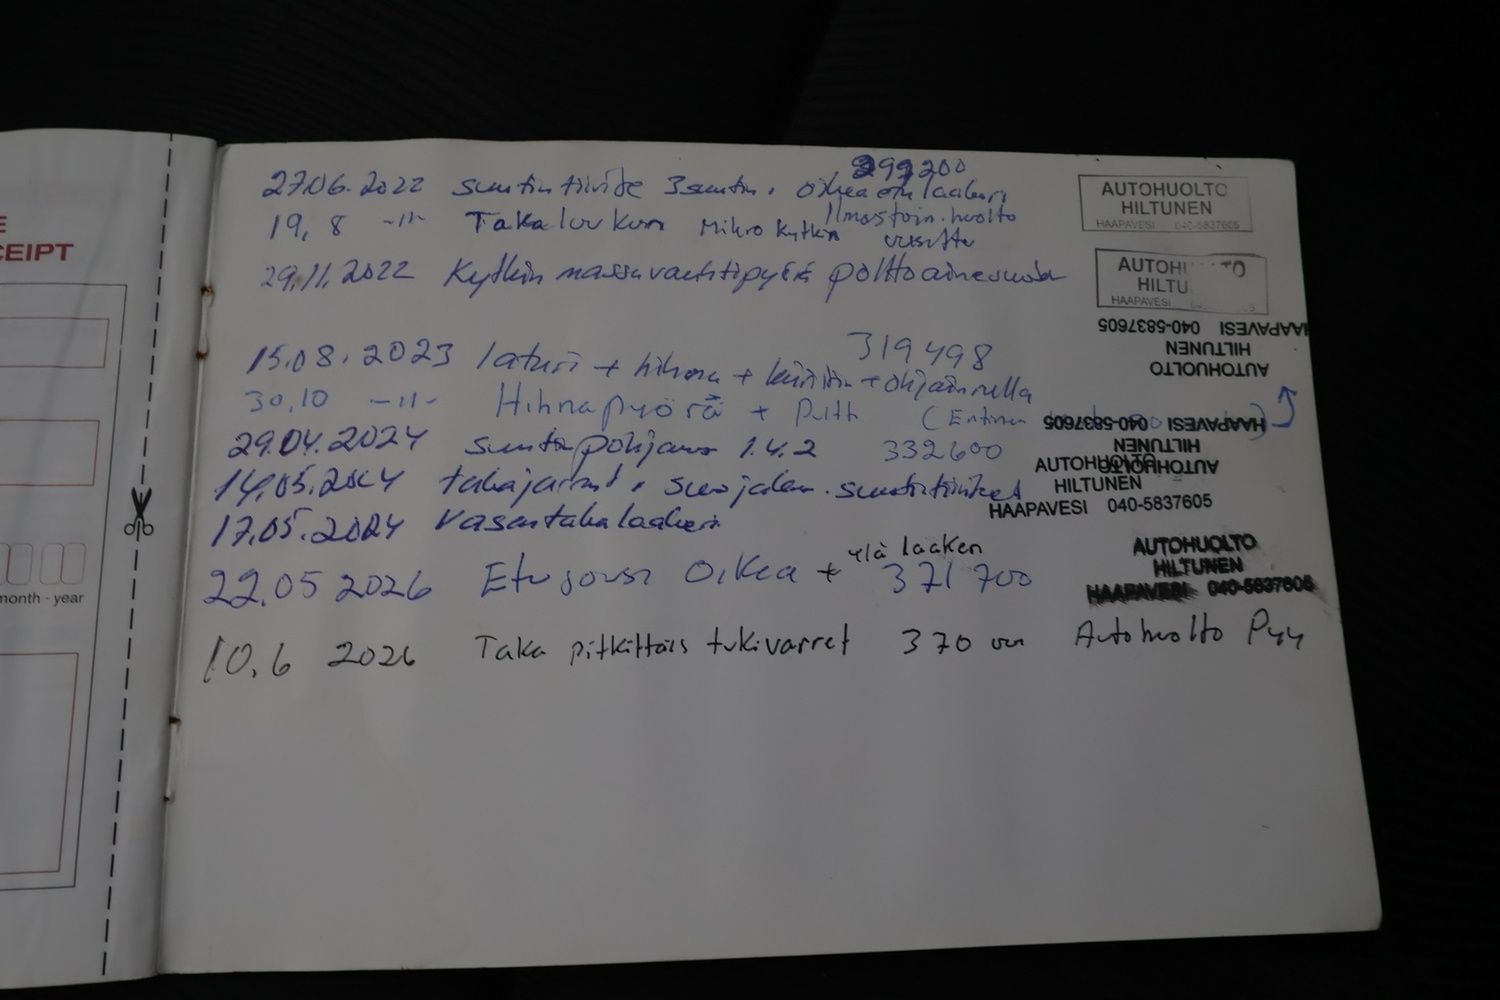 E
CEIPT
month - year
299200
27.06.2022 suutintiiviste 3 suutin. oikea etu laakeri
19.8 -11- Takaluukun Mikrokytkin Ilmastoin. huolto
uusittu
29.11.2022 Kytkin massavauhtipyörä polttoainesuodat
319498
15.08.2023 laturi + hihna + kiristin + ohjainrulla
30.10 -11- Hihnapyörä + Pultt (Entinen
29.04.2024 suutinpohjaus 1.4.2 332600
14.05.2024 takajarrut, suutintiivisteet
17.05.2024 Vasen takalaakeri
22.05 2026 Etujousi Oikea + ylä laakeri
371 700
10.6 2026 Taka pitkittäis tukivarret 370 Autohuolto Pyy
AUTOHUOLTO
HILTUNEN
HAAPAVESI 040-5837605
AUTOHU TO
HILTU
HAAPAVESI
HAAPAVESI 040-5837605
HILTUNEN
AUTOHUOLTO
HAAPAVESI 040-5837605
HILTUNEN
AUTOHUOLTO
AUTOHUOLTO
HILTUNEN
HAAPAVESI 040-5837605
AUTOHUOLTO
HILTUNEN
HAAPAVESI 040-5837605